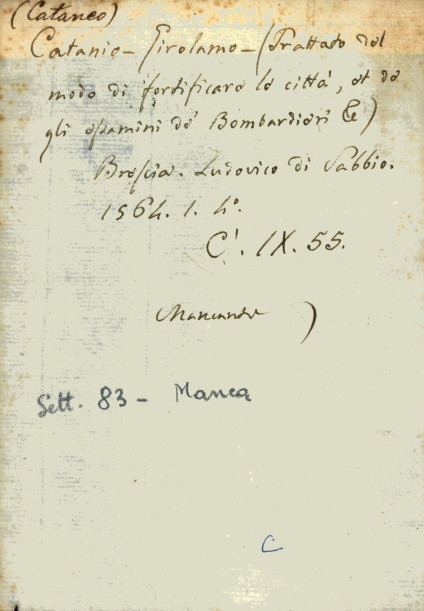 (Cataneo)
Catanio - Girolamo - (Trattado del
modo di fortificare le città, et de
gli essamini de' Bombardieri &)
Brescia. Ludovico di Sabbio.
1564. 1. 4°.
C'. IX. 55.
Mancante )
Sett. 83 - Manca
C